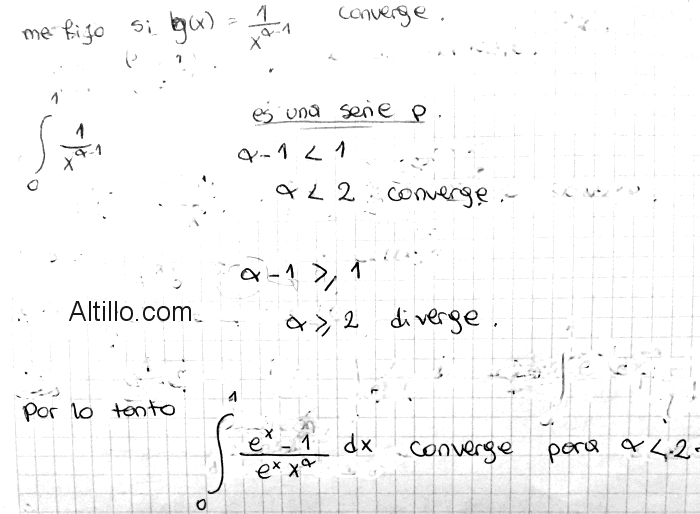 me fijo si g(x) = 1/x^(α-1) converge.
∫₀¹ 1/x^(α-1)
es una serie p.
α-1 < 1
α < 2 converge.
α-1 ≥ 1
Altillo.com
α ≥ 2 diverge.
Por lo tanto ∫₀¹ (e^x - 1)/(e^x x^α) dx converge para α < 2.